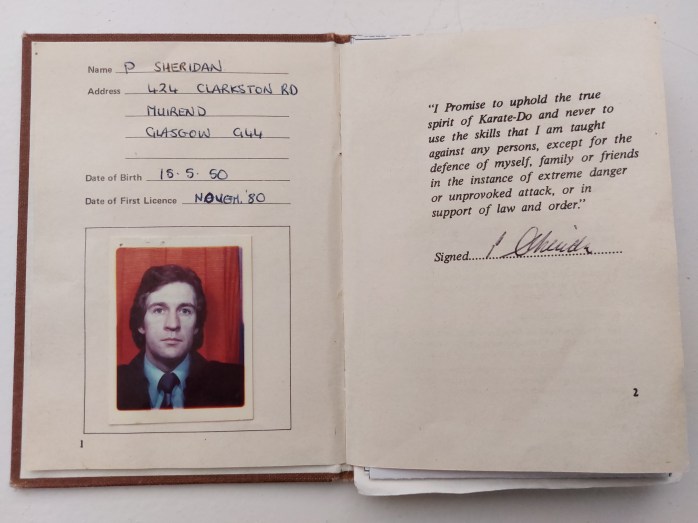 Name P SHERIDAN
Address 424 CLARKSTON RD
MUIREND
GLASGOW G44
Date of Birth 15.5.50
Date of First Licence NOVEM. '80
1
"I Promise to uphold the true
spirit of Karate-Do and never to
use the skills that I am taught
against any persons, except for the
defence of myself, family or friends
in the instance of extreme danger
or unprovoked attack, or in
support of law and order."
Signed P Sheridan
2